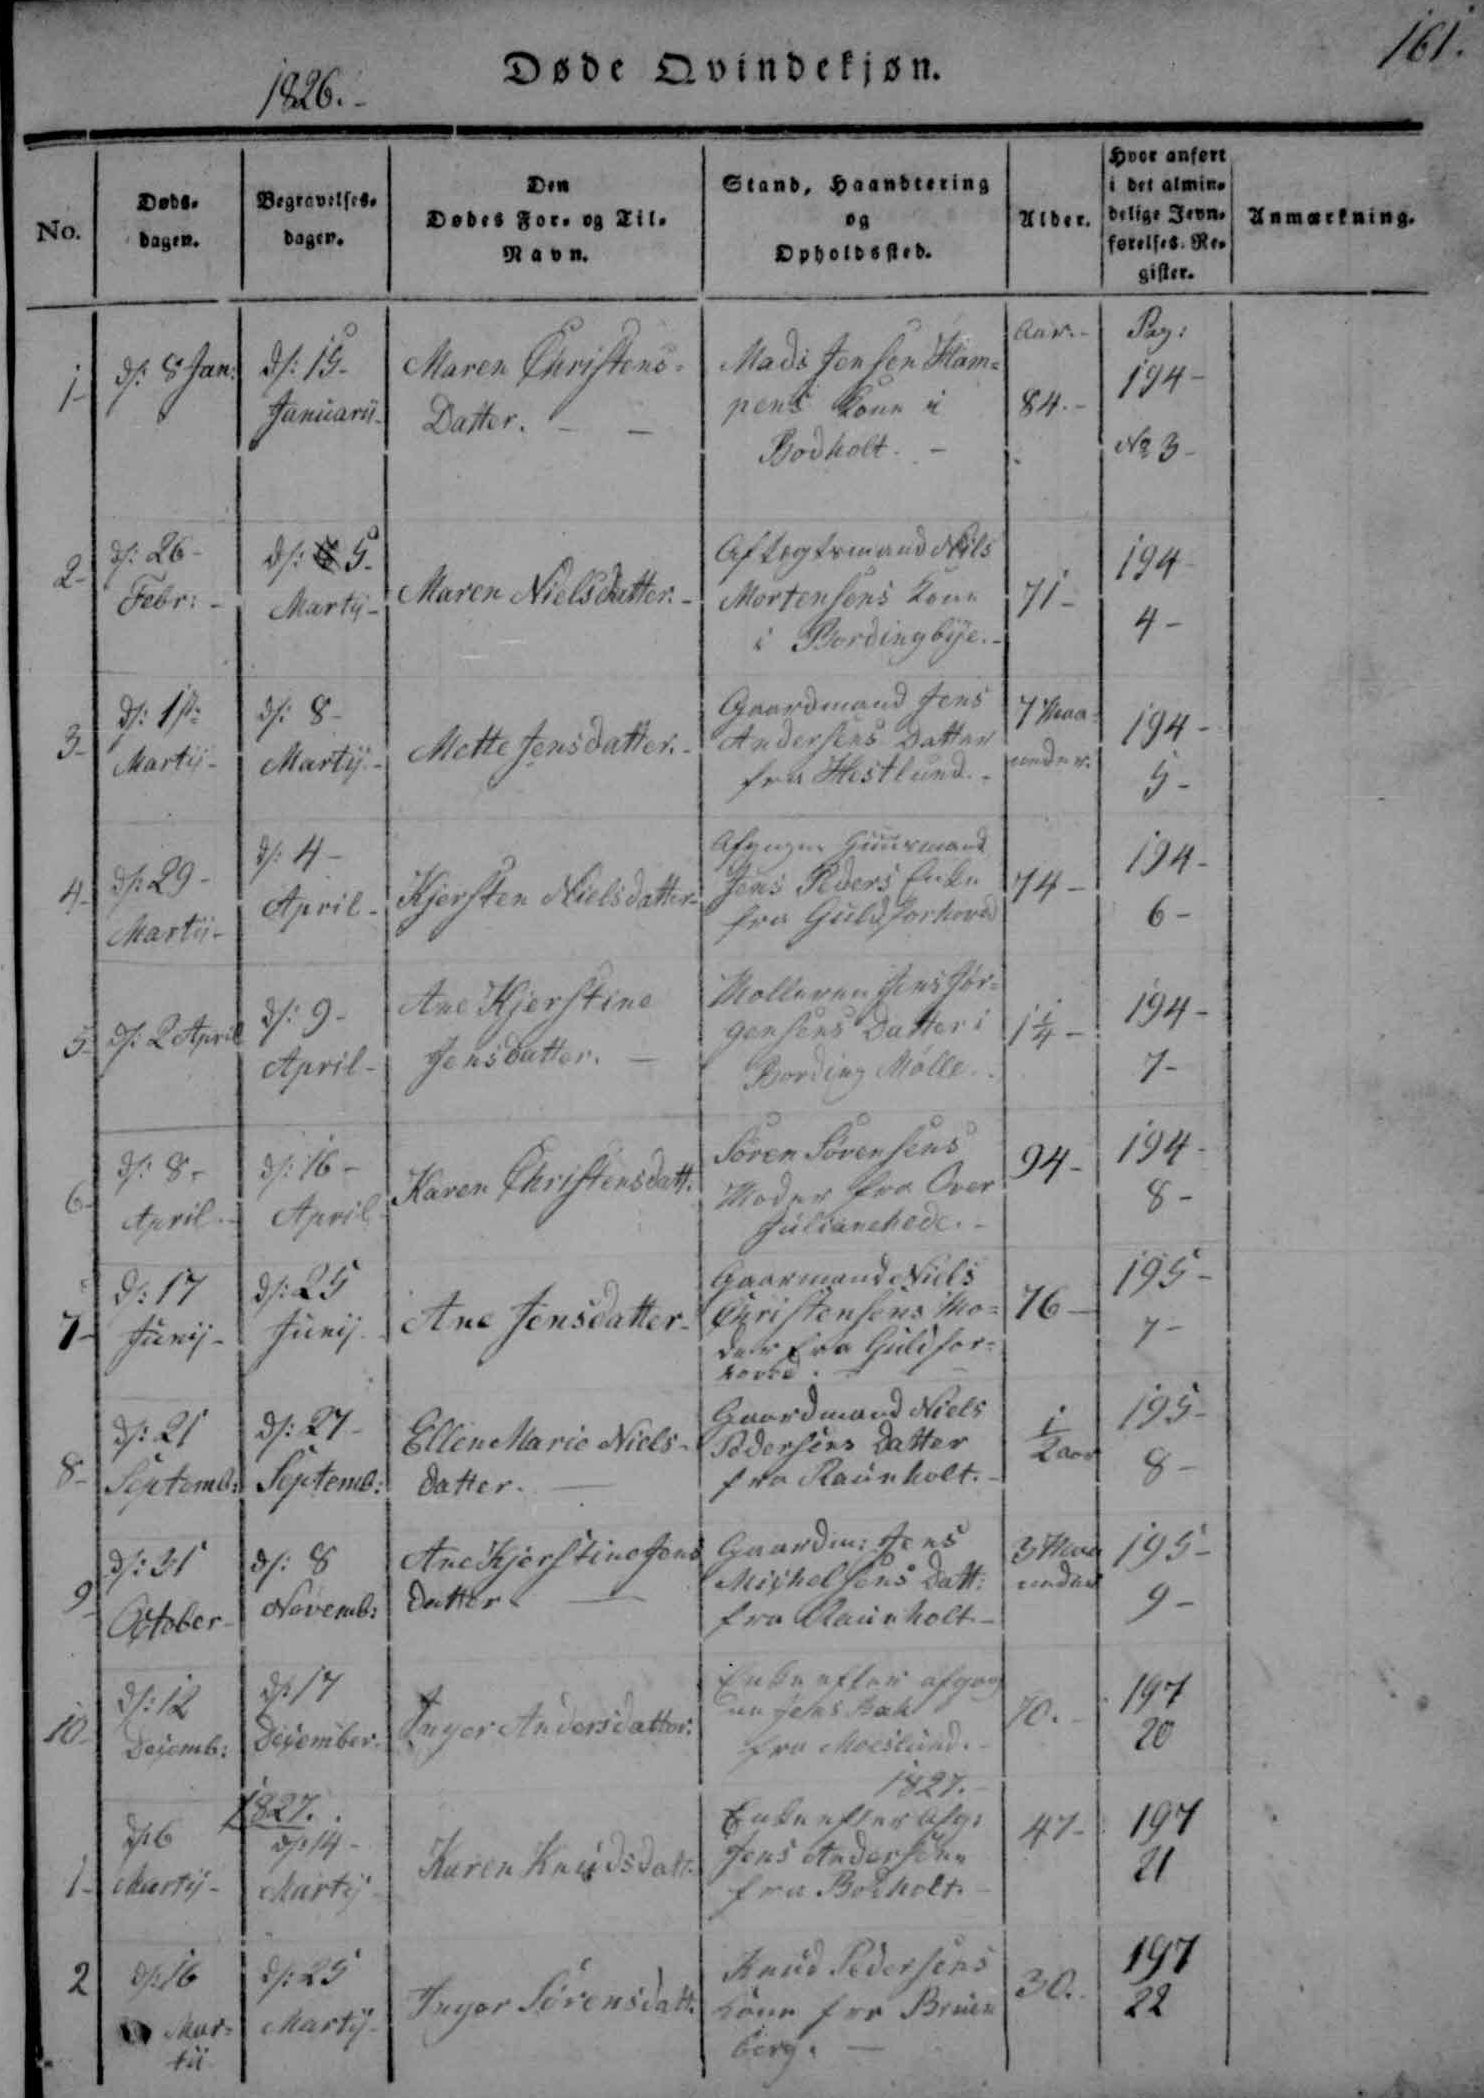 161.
1826.-
Døde Qvindekjøn.
No.
Døds-
dagen.
Begravelses-
dagen.
Den
Dødes For- og Til-
Navn.
Stand, Haandtering
og
Opholdssted.
Alder.
Hvor anført
i det almin-
delige Jevn-
førelses-Re-
gister.
Anmærkning.
1-
d: 8 Jan:
d: 15-
Januarii-
Maren Christens-
Datter. - -
Mads Jensen Ham-
pens Kone i
Bodholt. -
Aar.-
84.-
Pag:
194-
No 3-
2-
d: 26-
Febr: -
d: 5-
Martij-
Maren Nielsdatter.-
Aftægtsmand Nils
Mortensens Kone
i Bordingbÿe.-
71-
194-
4-
3-
d: 1ste
Martij-
d: 8-
Martij.-
Mette Jensdatter.-
Gaardmand Jens
Andersens Datter
fra Hestlund.-
7 Maa-
neder.
194-
5-
4-
d: 29-
Martij-
d: 4-
April-
Kjersten Nielsdatter-
Afgangne Huusmand
Jens Peders Enke
fra Guldforhoved
74-
194-
6-
5-
d: 2 April
d: 9-
April-
Ane Kjerstine
Jensdatter. -
Mølleren Jens Jør-
gensens Datter i
Bording Mølle.
1 1/4-
194-
7-
6-
d: 8-
April.-
d: 16-
April-
Karen Christensdatt.
Søren Sørensens
Moder fra Over
Julianehede.-
94-
194-
8-
7-
d: 17
Junij-
d: 25
Junij-
Ane Jensdatter-
Gaarmand Niels
Christensens Mo-
der fra Guldfor-
hoved. -
76-
195-
7-
8-
d: 21
Septemb:
d: 27-
Septemb:
Ellen Marie Niels-
datter. -
Gaardmand Niels
Pedersens Datter
fra Raunholt.-
1/2 aar
195-
8-
9-
d: 31
October-
d: 8
Novemb:
Ane Kjerstine Jens
datter -
Gaardm: Jens
Michelsens Datt:
fra Raunholt.-
3 Maa
neder
195-
9-
10-
d: 12
Decemb:
d: 17
December-
Inger Andersdatter.
Enke efter afgag
ne Jens Bak
fra Moeslund.-
70.-
197
20
1827.
1827.-
1-
d: 6
Martij-
d: 14-
Martij-
Karen Knudsdatt.
Enke efter Afg:
Jens Andersen
fra Bodholt.-
47-
197
21
2
d: 16
Mar-
tii
d: 25
Martij-
Inger Sørensdatt.
Knud Pedersens
Kone fra Bruun
berg. -
30.-
197
22